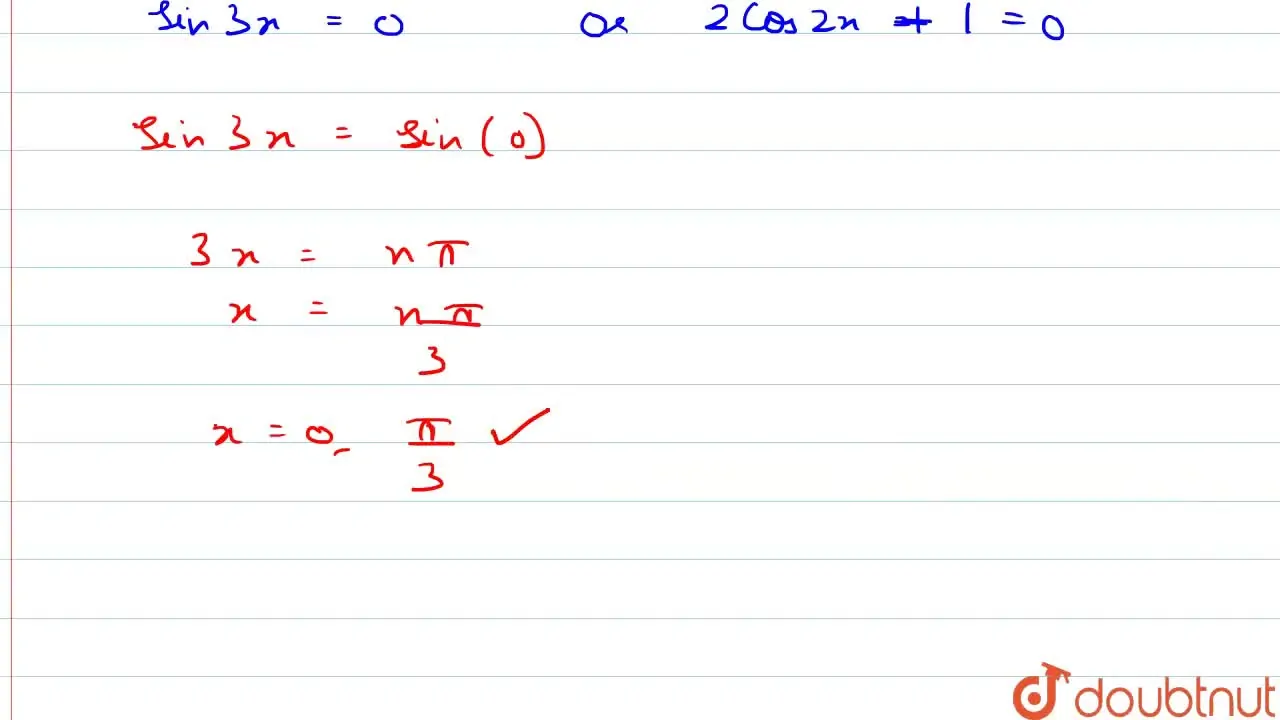 sin 3x = 0 or 2 cos 2x + 1 = 0
sin 3x = sin (0)
3x = nπ
x = nπ
3
x = 0, π ✓
3
doubtnut